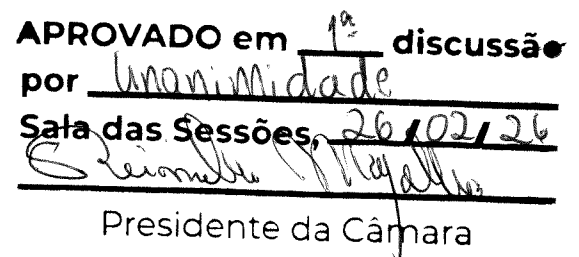 APROVADO em 1ª discussão
por Unanimidade
Sala das Sessões, 26/02/26
Magalhães
Presidente da Câmara